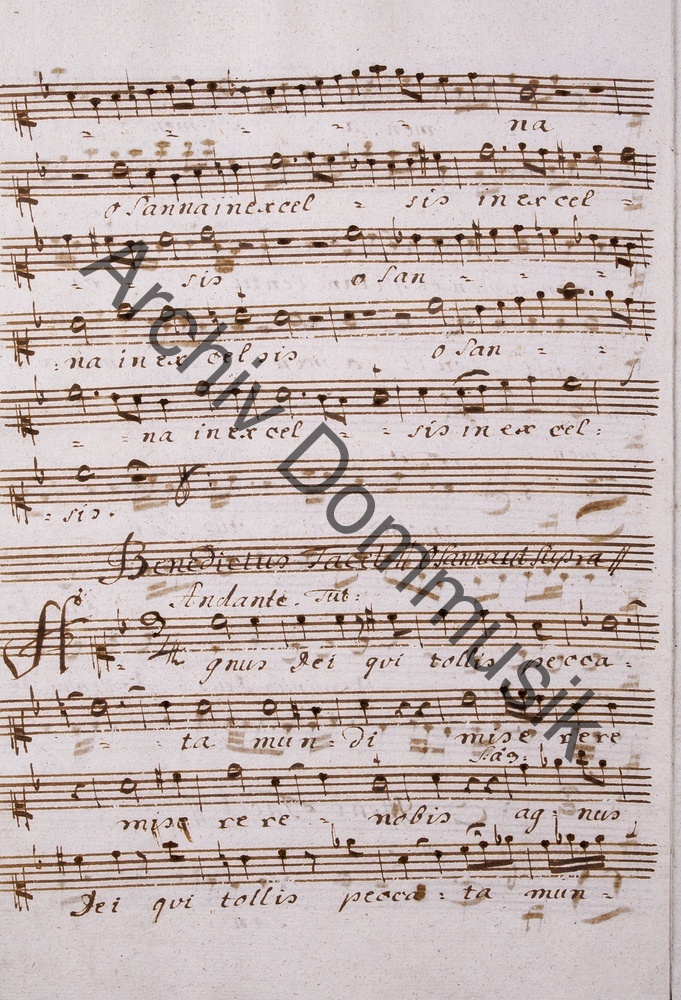 na
o Sanna in excel - sis in excel -
sis o San - - -
na in excelsis o San - -
- - na in excel - - sis in excel:
- sis.
Benedictus Tacet // Osanna ut supra //
Andante. Tut:
Agnus Dei qui tollis pecca -
- - ta mun - di mise rere
Solo:
mise re re - nobis ag - nus
Dei qui tollis pecca - ta mun -
Archiv Dommusik